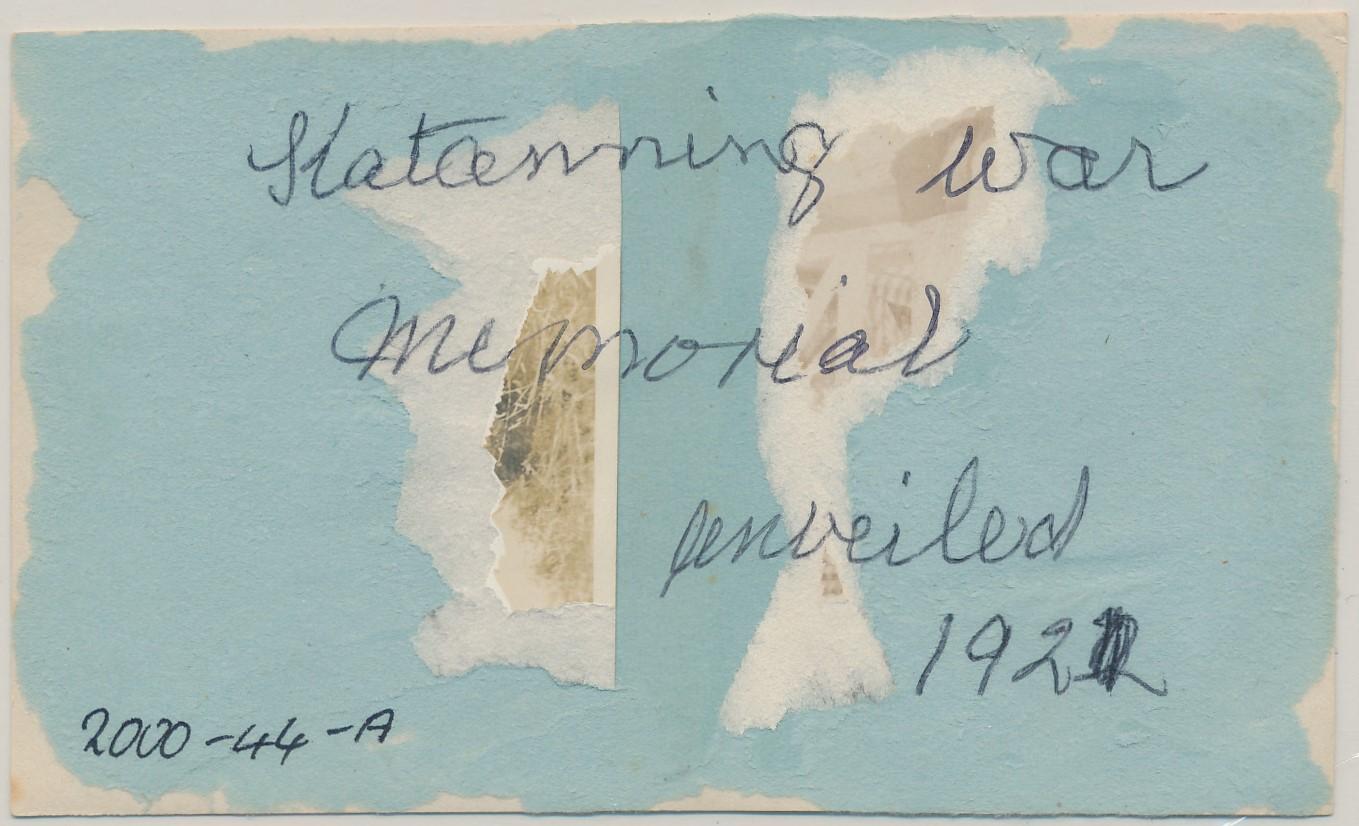 Katanning War
Memorial
unveiled
192
2000-44-A